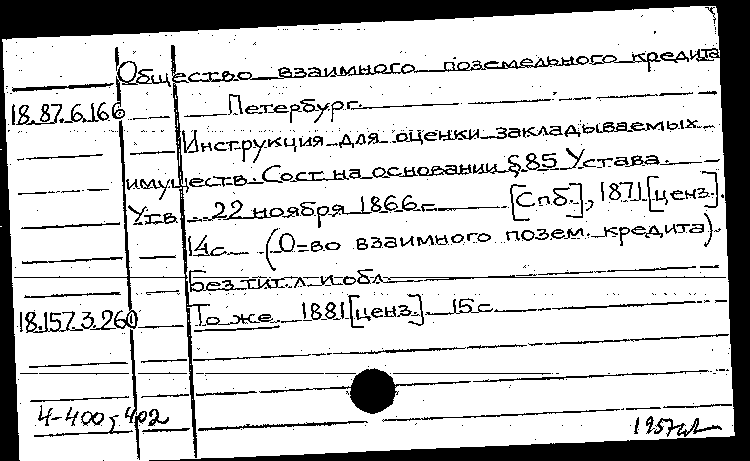 Общество взаимного поземельного кредита
18.87.6.166 Петербург.
Инструкция для оценки закладываемых
имуществ. Сост. на основании § 85 Устава.
Утв. 22 ноября 1866 г. [Спб.], 1871 [ценз.].
14 с. (О-во взаимного позем. кредита).
Без тит. л. и обл.
18.157.3.260 То же. 1881 [ценз.]. 15 с.
4-400,402
1957